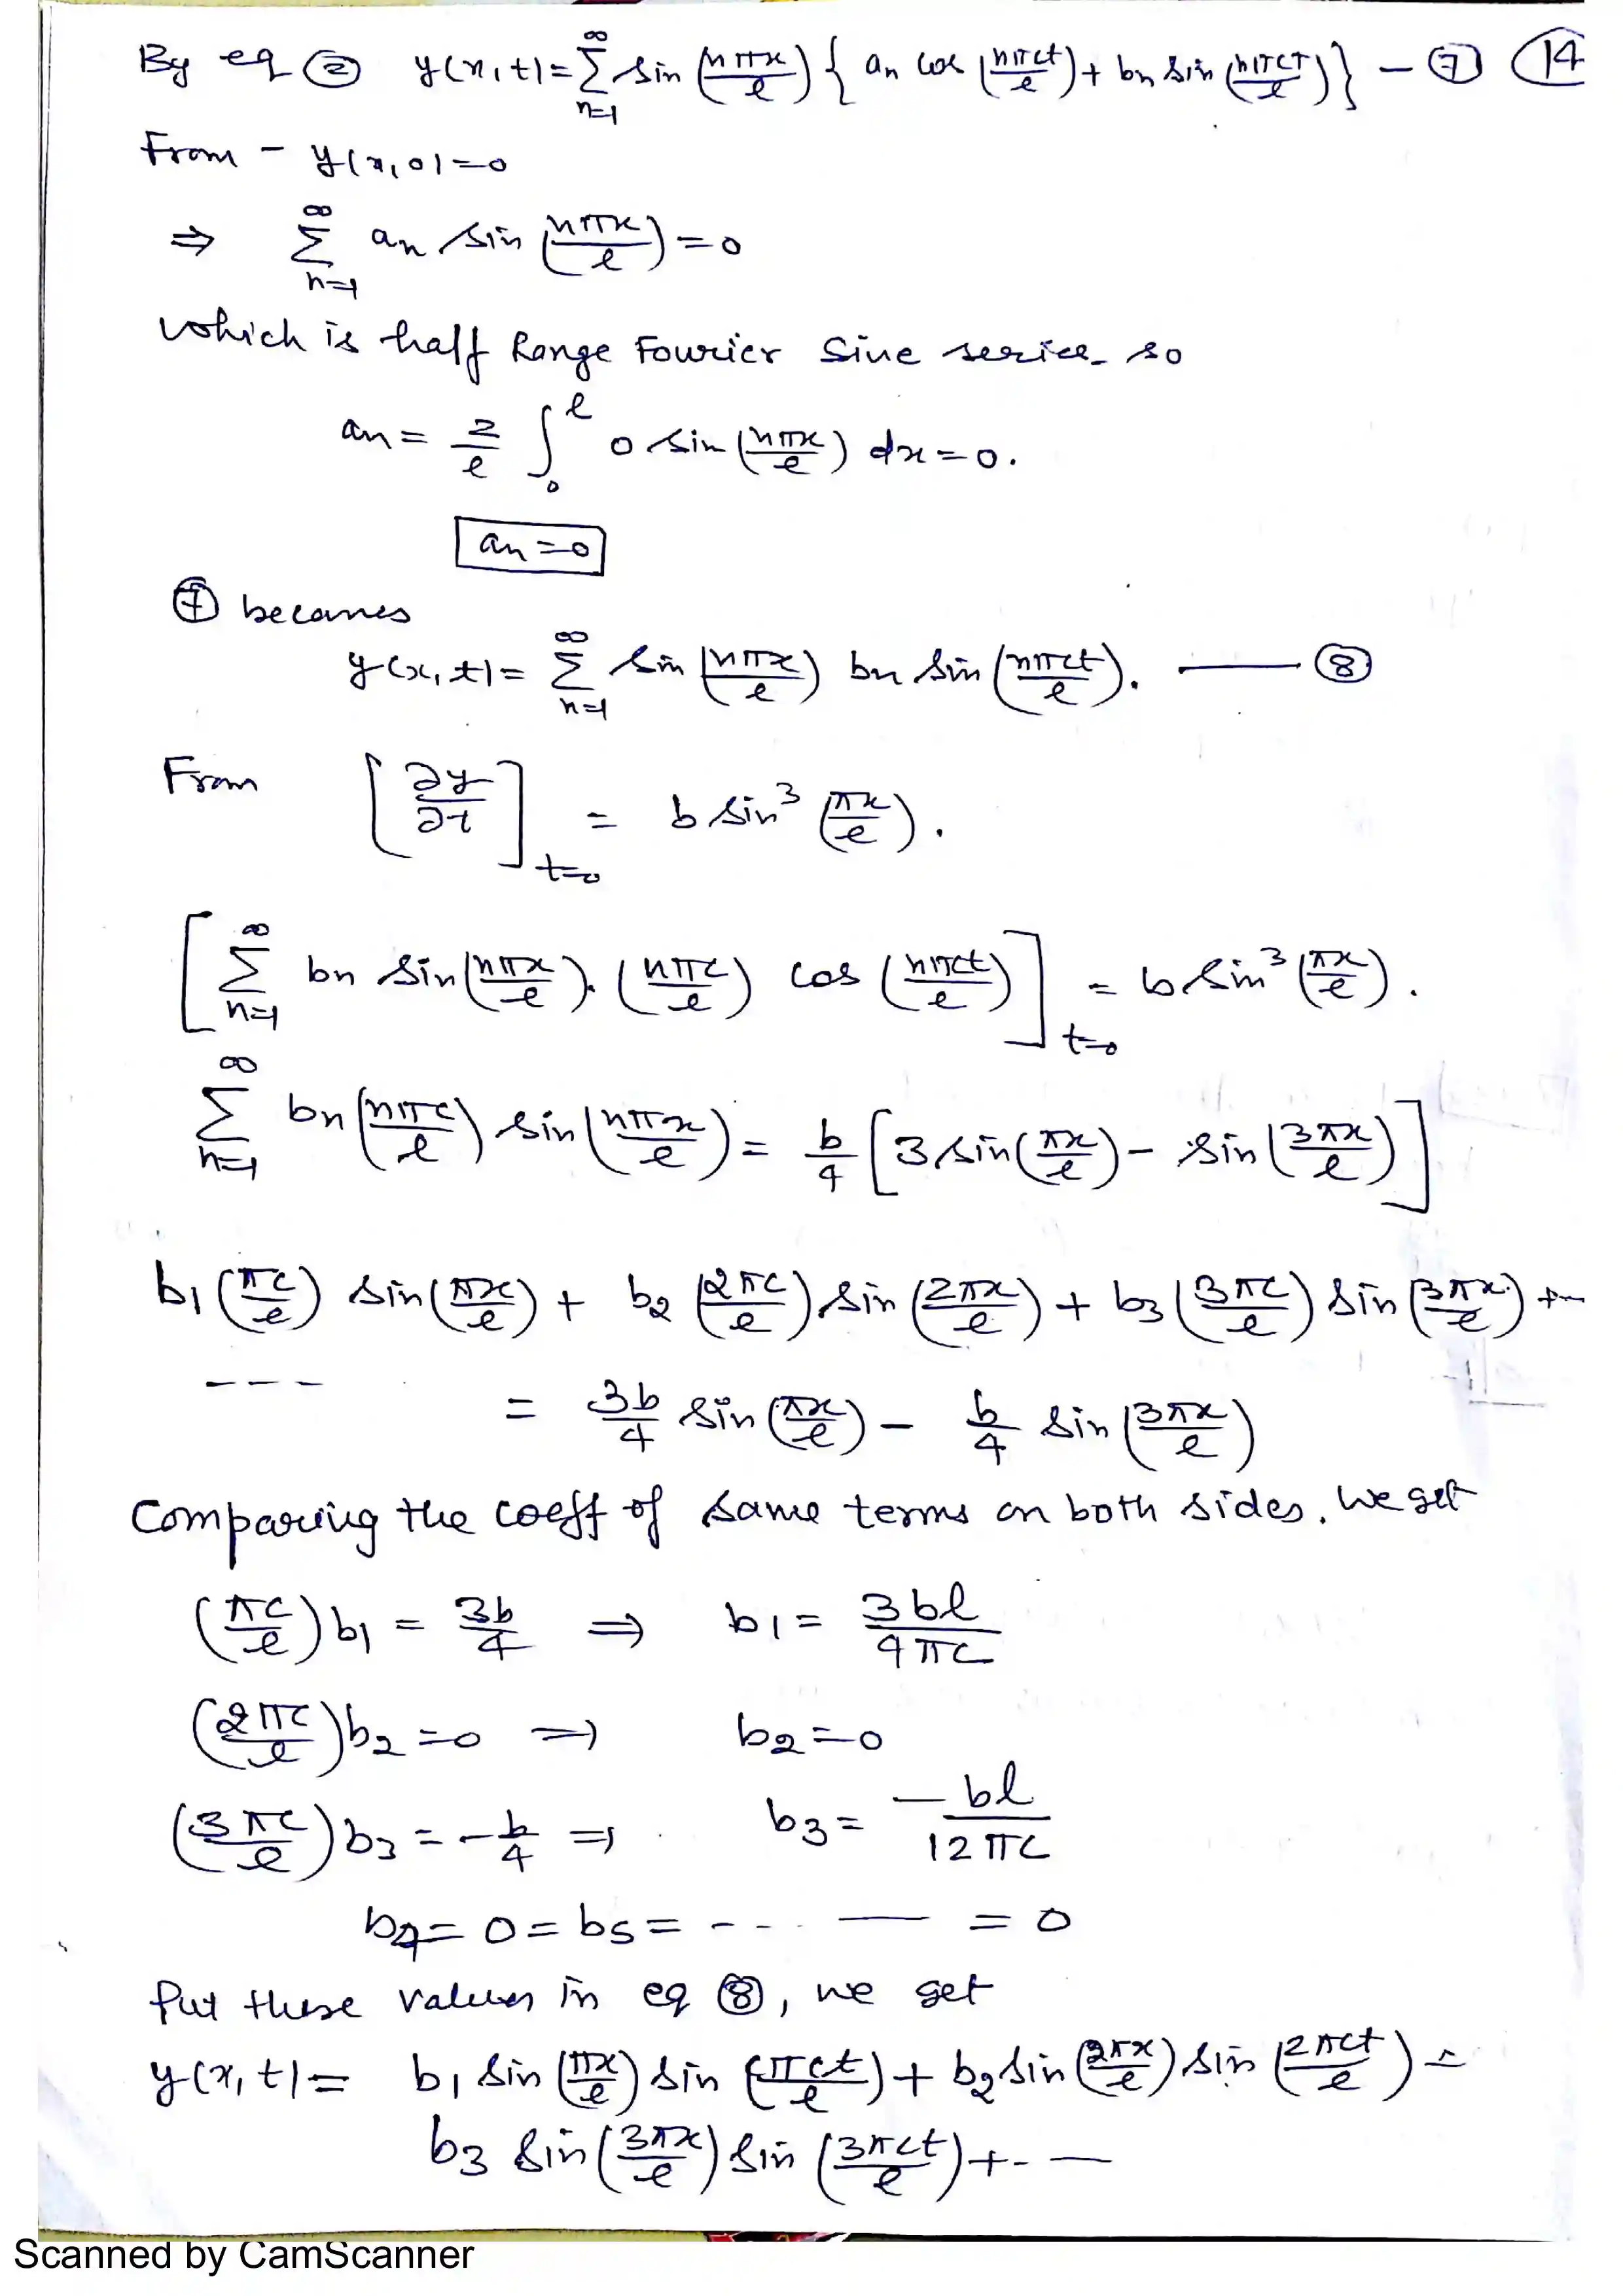 By eq ② y(x,t)=∑_{n=1}^{∞} sin(nπx/l) { an cos(nπct/l) + bn sin(nπct/l)} — ⑦ ⑭
From – y(x,0)=0
⇒ ∑_{n=1}^{∞} an sin(nπx/l)=0
which is half Range Fourier Sine series so
an = 2/l ∫_0^l 0 sin(nπx/l) dx=0.
an=0
⑦ becomes
y(x,t)= ∑_{n=1}^{∞} sin(nπx/l) bn sin(nπct/l). —— ⑧
From [∂y/∂t]_{t=0} = b sin³(πx/l).
[∑_{n=1}^{∞} bn sin(nπx/l).(nπc/l) cos(nπct/l)]_{t=0} = b sin³(πx/l).
∑_{n=1}^{∞} bn(nπc/l) sin(nπx/l) = b/4 [3 sin(πx/l) – sin(3πx/l)]
b1(πc/l) sin(πx/l) + b2(2πc/l) sin(2πx/l) + b3(3πc/l) sin(3πx/l) + --
--- = 3b/4 sin(πx/l) – b/4 sin(3πx/l)
Comparing the coeff of same terms on both sides, we get
(πc/l)b1 = 3b/4 ⇒ b1 = 3bl/4πc
(2πc/l)b2 =0 ⇒ b2=0
(3πc/l)b3 = –b/4 ⇒ b3 = –bl/12πc
b4= 0 = b5 = --- — = 0
Put these values in eq ⑧, we get
y(x,t)= b1 sin(πx/l) sin(πct/l) + b2 sin(2πx/l) sin(2πct/l) +
b3 sin(3πx/l) sin(3πct/l) + - —
Scanned by CamScanner